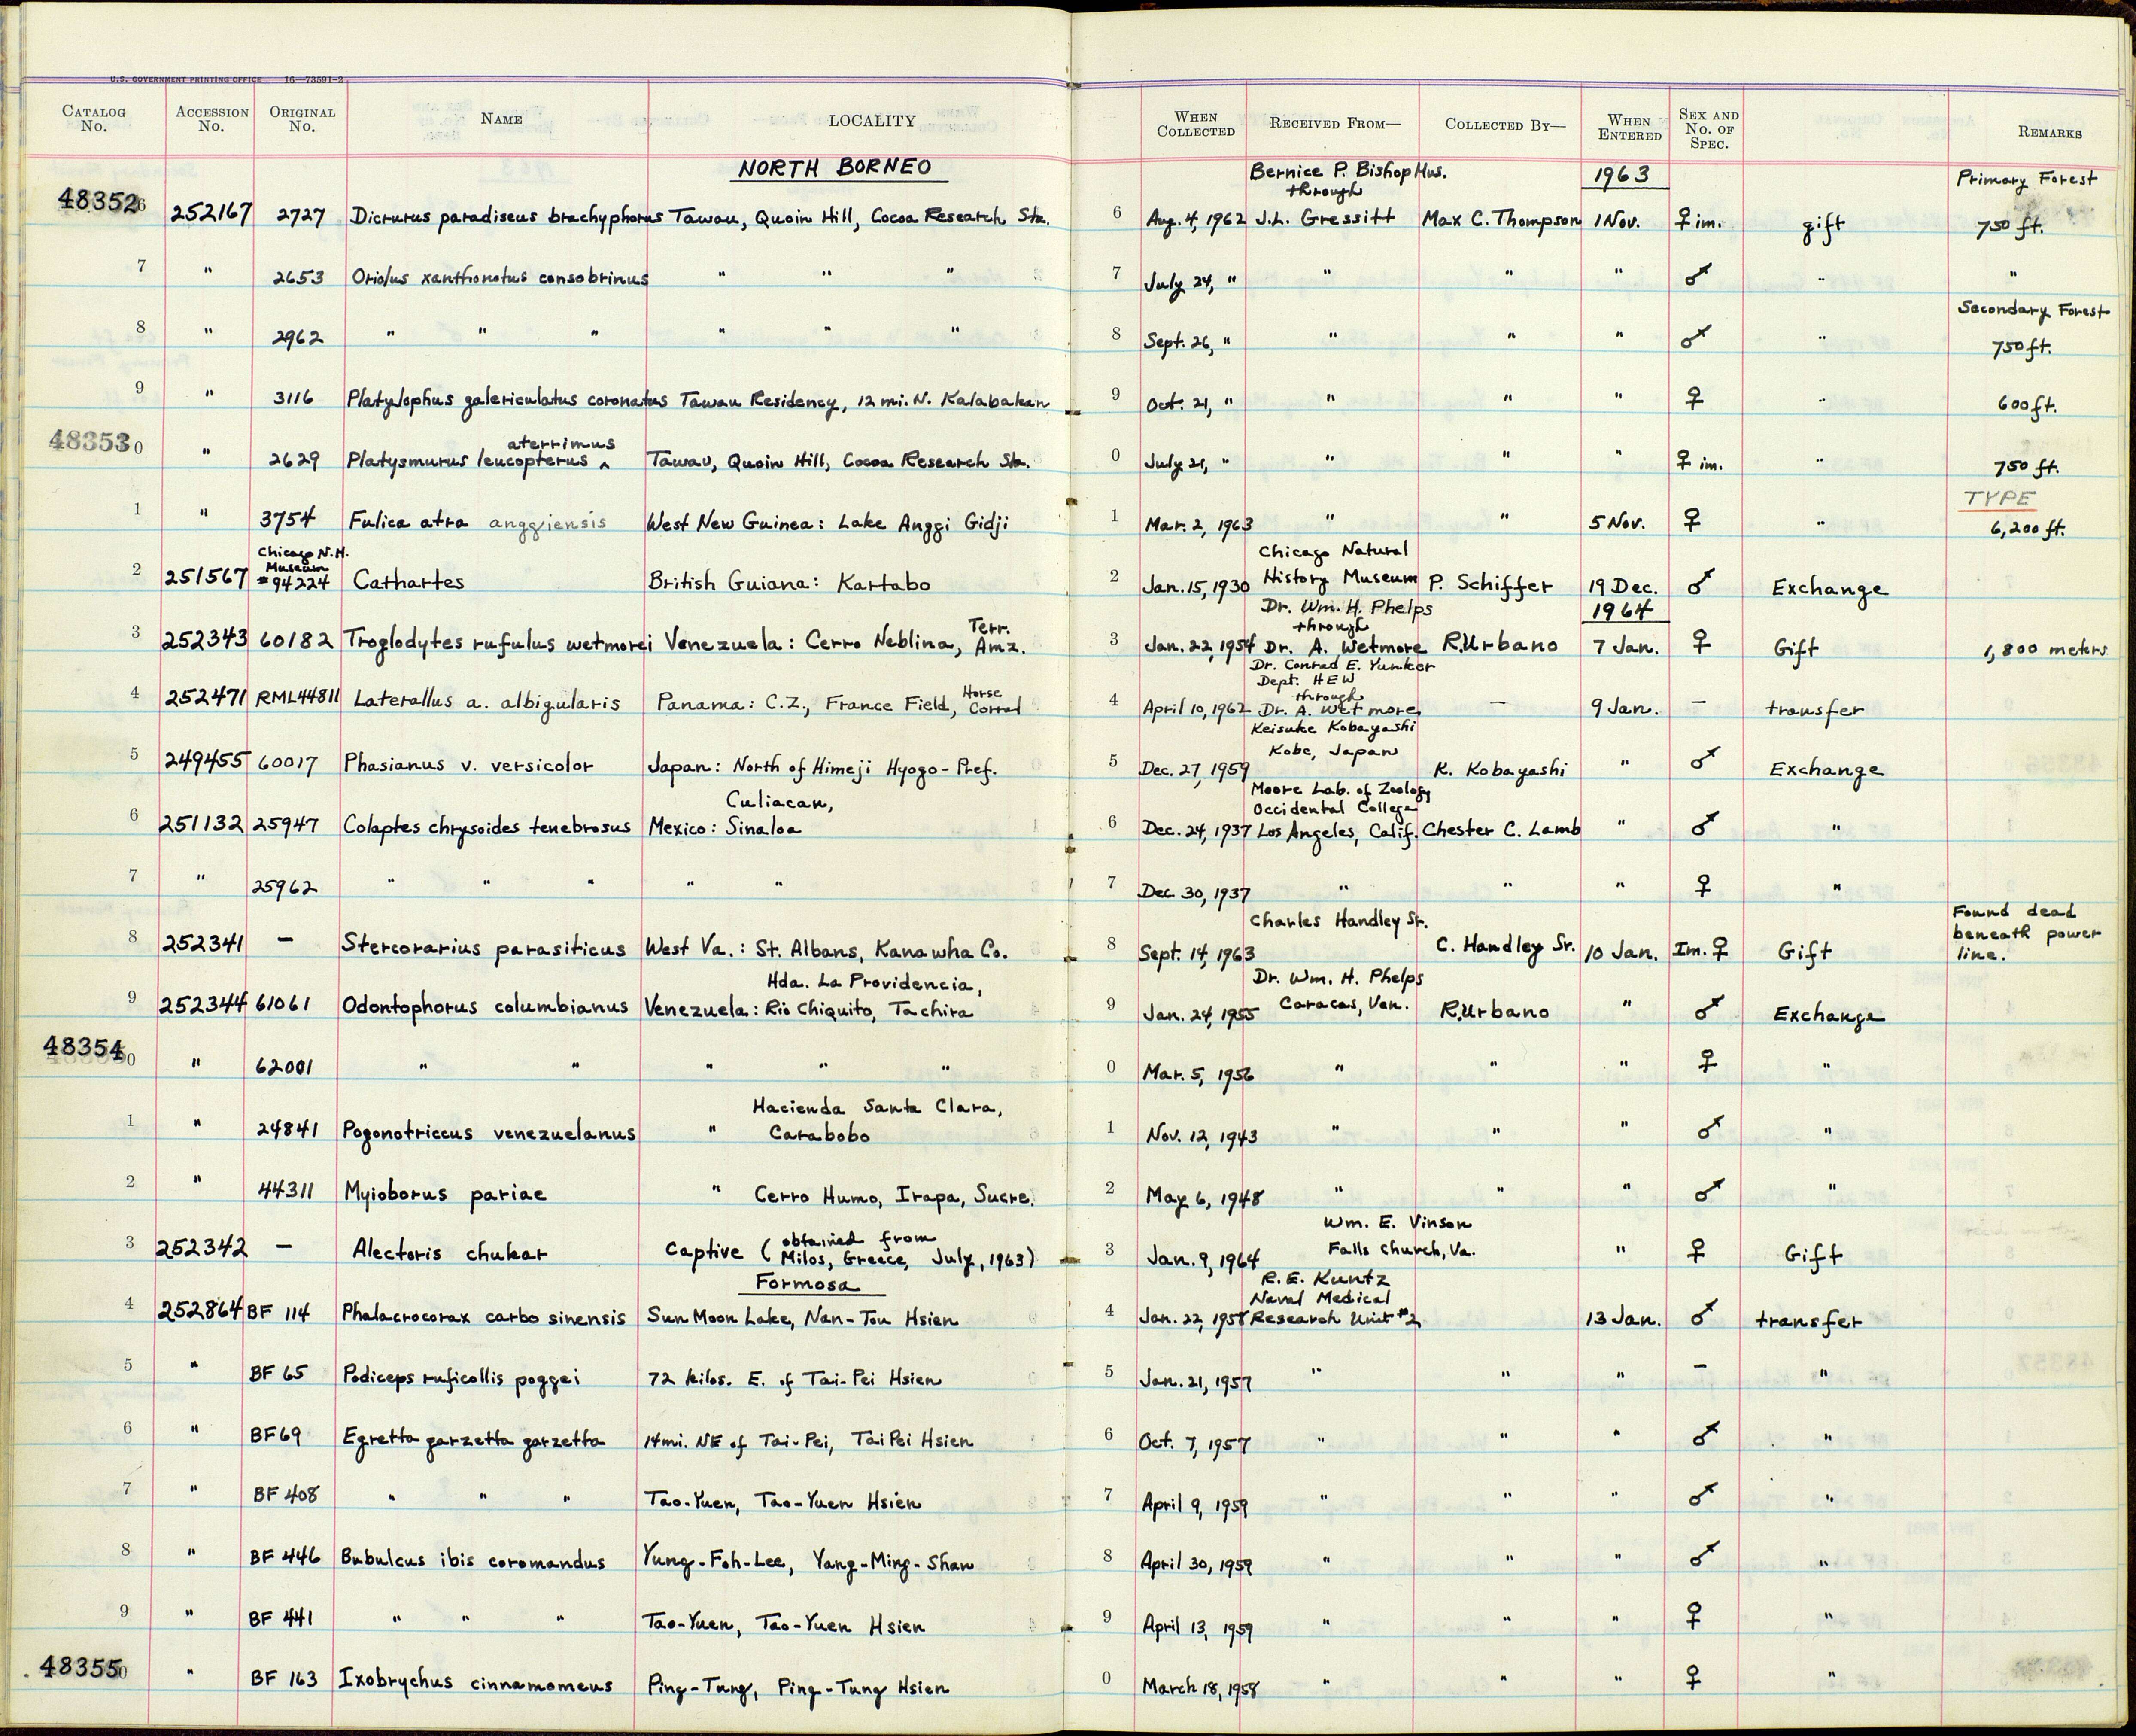 U.S. GOVERNMENT PRINTING OFFICE 16—73591-2
CATALOG No. ACCESSION No. ORIGINAL No. NAME LOCALITY WHEN COLLECTED RECEIVED FROM— COLLECTED BY— WHEN ENTERED SEX AND No. OF SPEC. REMARKS
NORTH BORNEO Bernice P. Bishop Mus. through 1963 Primary Forest
48352 6 252167 2727 Dicrurus paradiseus brachyphorus Tawau, Quoin Hill, Cocoa Research Sta. 6 Aug. 4, 1962 J.L. Gressitt Max C. Thompson 1 Nov. ♀ im. gift 750 ft.
7 " 2653 Oriolus xanthonotus consobrinus " " " 7 July 24, " " " " ♂ " "
Secondary Forest
8 " 2962 " " " " " " 8 Sept. 26, " " " " ♂ " 750 ft.
9 " 3116 Platylophus galericulatus coronatus Tawau Residency, 12 mi. N. Kalabakan 9 Oct. 21, " " " " ♀ " 600 ft.
aterrimus
48353 0 " 2629 Platysmurus leucopterus ^ Tawau, Quoin Hill, Cocoa Research Sta. 0 July 21, " " " " ♀ im. " 750 ft.
TYPE
1 " 3754 Fulica atra anggiensis West New Guinea: Lake Anggi Gidji 1 Mar. 2, 1963 " " 5 Nov. ♀ " 6,200 ft.
Chicago N.H. Museum Chicago Natural
2 251567 #94224 Cathartes British Guiana: Kartabo 2 Jan. 15, 1930 History Museum P. Schiffer 19 Dec. ♂ Exchange
Terr. Dr. Wm. H. Phelps through 1964
3 252343 60182 Troglodytes rufulus wetmorei Venezuela: Cerro Neblina, Amz. 3 Jan. 22, 1954 Dr. A. Wetmore R. Urbano 7 Jan. ♀ Gift 1,800 meters
Horse Dr. Conrad E. Yunker Dept. HEW through
4 252471 RML44811 Laterallus a. albigularis Panama: C.Z., France Field, Corral 4 April 10, 1962 Dr. A. Wetmore — 9 Jan. — transfer
Keisuke Kobayashi Kobe, Japan
5 249455 60017 Phasianus v. versicolor Japan: North of Himeji Hyogo-Pref. 5 Dec. 27, 1959 K. Kobayashi " ♂ Exchange
Culiacan, Moore Lab. of Zoology Occidental College
6 251132 25947 Colaptes chrysoides tenebrosus Mexico: Sinaloa 6 Dec. 24, 1937 Los Angeles, Calif. Chester C. Lamb " ♂ "
7 " 25962 " " " " " 7 Dec. 30, 1937 " " " ♀ "
Charles Handley Sr. Found dead beneath power
8 252341 — Stercorarius parasiticus West Va.: St. Albans, Kanawha Co. 8 Sept. 14, 1963 C. Handley Sr. 10 Jan. Im. ♀ Gift line.
Hda. La Providencia, Dr. Wm. H. Phelps
9 252344 61061 Odontophorus columbianus Venezuela: Rio Chiquito, Tachira 9 Jan. 24, 1955 Caracas, Ven. R. Urbano " ♂ Exchange
48354 0 " 62001 " " " " " 0 Mar. 5, 1956 " " " ♀ "
Hacienda Santa Clara,
1 " 24841 Pogonotriccus venezuelanus " Carabobo 1 Nov. 12, 1943 " " " ♂ "
2 " 44311 Myioborus pariae " Cerro Humo, Irapa, Sucre. 2 May 6, 1948 " " " ♂ "
obtained from Wm. E. Vinson
3 252342 — Alectoris chukar Captive (Milos, Greece, July, 1963) 3 Jan. 9, 1964 Falls Church, Va. " ♀ Gift
Formosa R.E. Kuntz Naval Medical
4 252864 BF 114 Phalacrocorax carbo sinensis Sun Moon Lake, Nan-Tou Hsien 4 Jan. 22, 1958 Research Unit #2 13 Jan. ♂ transfer
5 " BF 65 Podiceps ruficollis poggei 72 kilos. E. of Tai-Pei Hsien 5 Jan. 21, 1957 " " " — "
6 " BF69 Egretta garzetta garzetta 14mi. NE of Tai-Pei, TaiPei Hsien 6 Oct. 7, 1957 " " " ♂ "
7 " BF 408 " " " Tao-Yuen, Tao-Yuen Hsien 7 April 9, 1959 " " " ♂ "
8 " BF 446 Bubulcus ibis coromandus Yung-Foh-Lee, Yang-Ming-Shan 8 April 30, 1959 " " " ♂ "
9 " BF 441 " " " Tao-Yuen, Tao-Yuen Hsien 9 April 13, 1959 " " " ♀ "
48355 0 " BF 163 Ixobrychus cinnamomeus Ping-Tung, Ping-Tung Hsien 0 March 18, 1958 " " " ♀ "